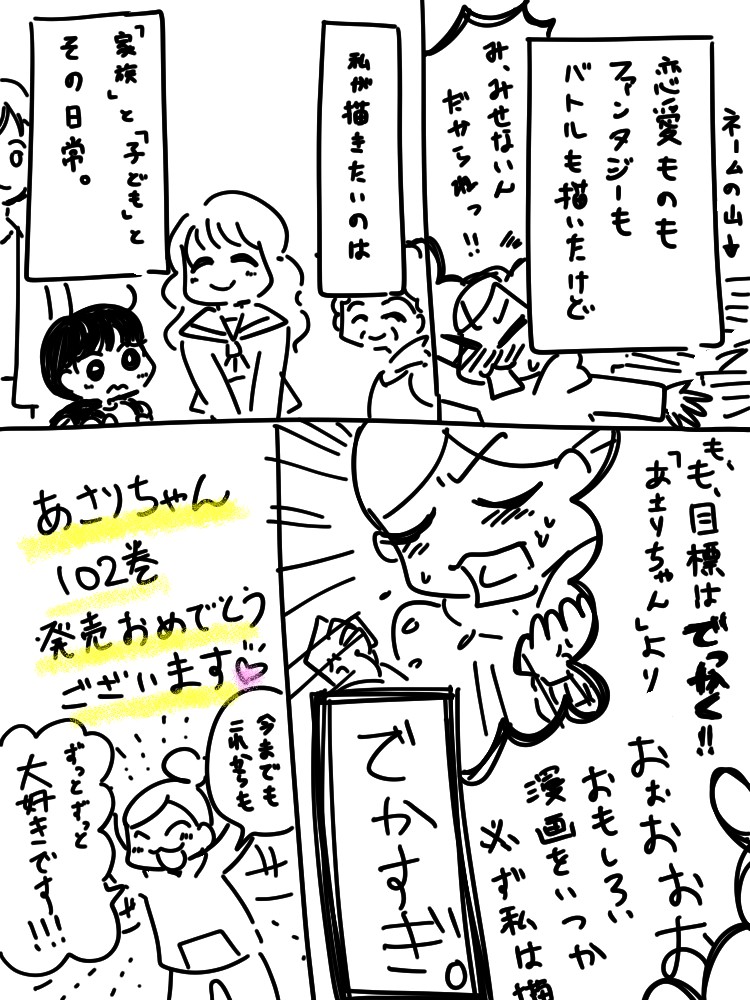 ネームの山
恋愛ものも
ファンタジーも
バトルも描いたけど
み、みせないん
だからねっ!!
私が描きたいのは
「家族」と「子ども」と
その日常。
も、
も、目標はでっかく!!
「あさりちゃん」より
おぉおおお
おもしろい
漫画をいつか
必ず私は描
でかすぎ。
あさりちゃん
102巻
発売おめでとう
ございます♡
今までも
これからも
ずっとずっと
大好きです!!!